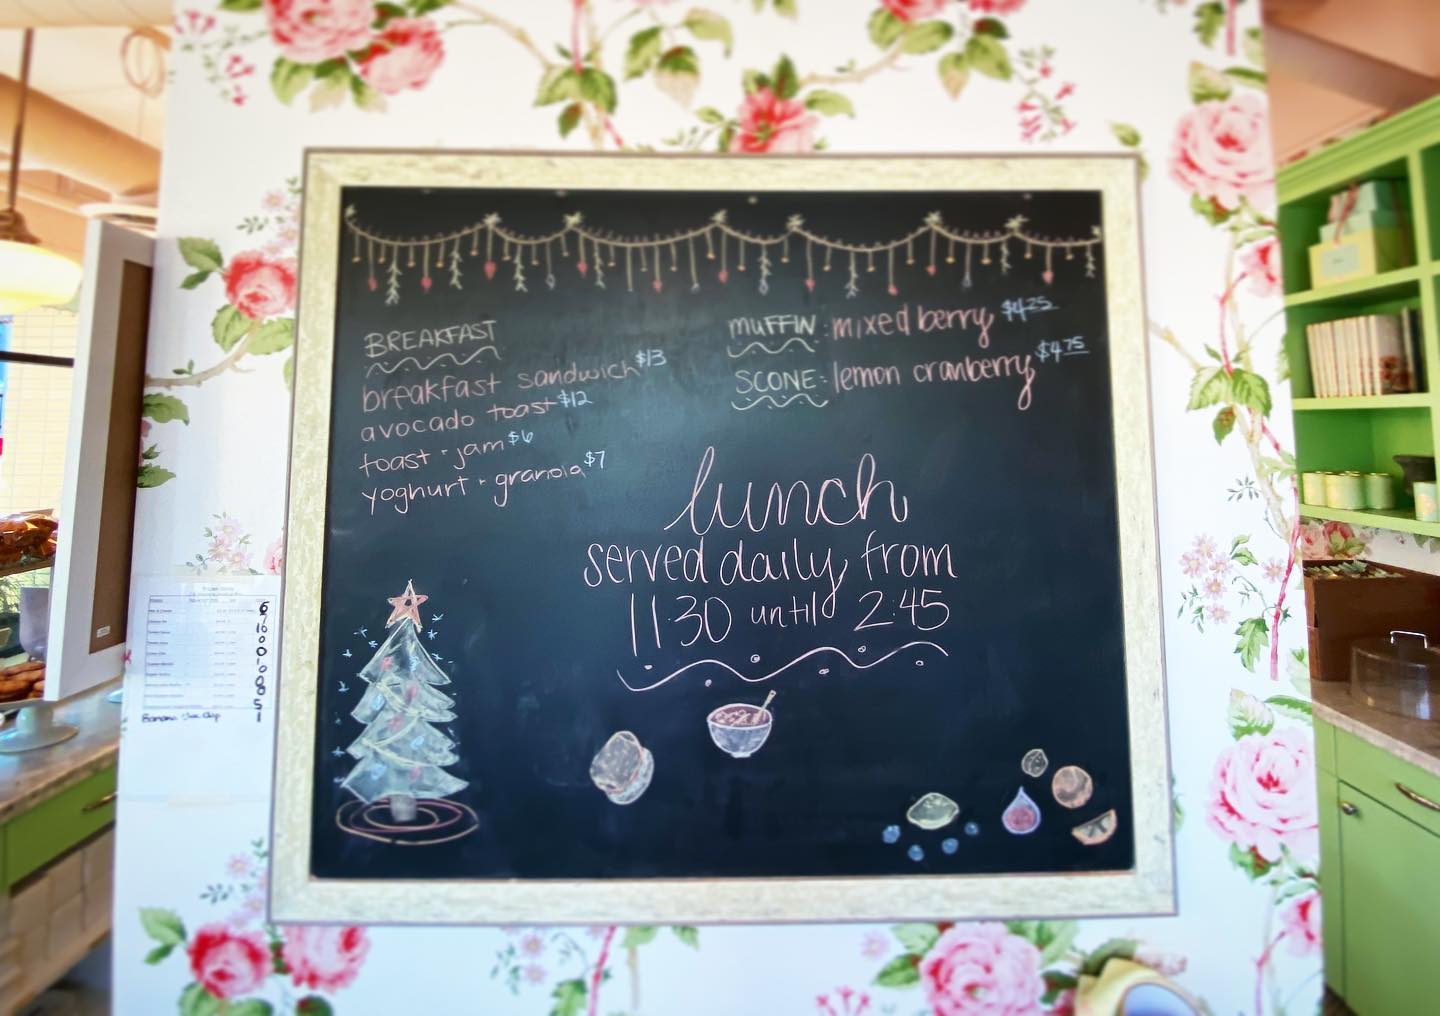 BREAKFAST
breakfast sandwich $13
avocado toast $12
toast + jam $6
yoghurt + granola $7
MUFFIN: mixed berry $4.25
SCONE: lemon cranberry $4.75
lunch
served daily from
11:30 until 2:45
Banana